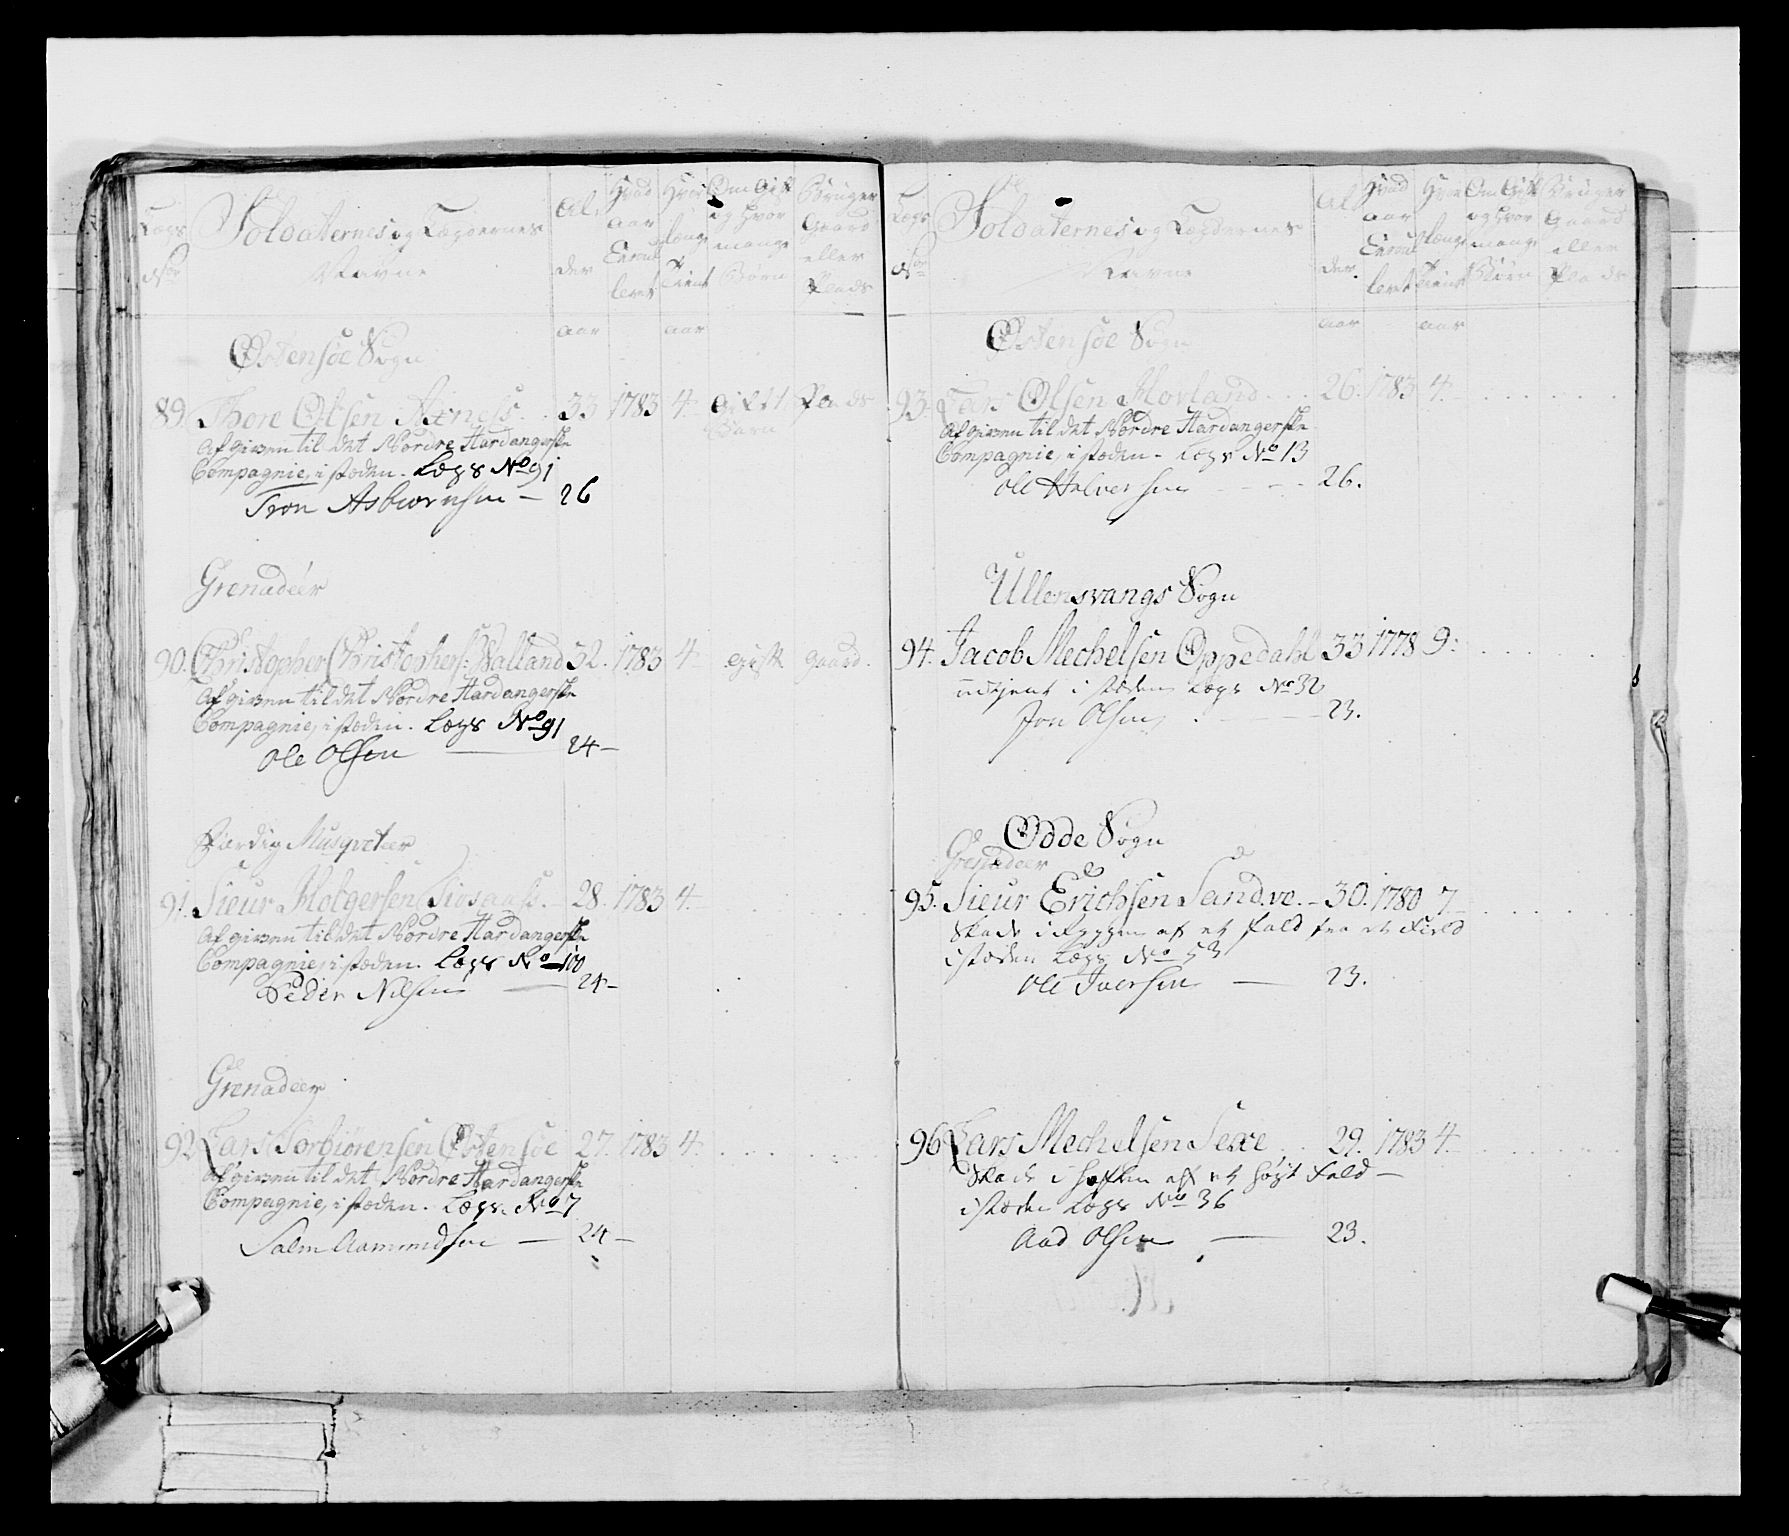 Lægs No
Soldaternes og Lægdernes Navne
Alder
Hvad aar Enroulleret
Hvor længe Tient
Om Gift og hvor mange Børn
Bruger Gaard eller Plads
aar aar
Østensøe Sogn
89. Thore Olsen Axness. 33 1783 4. Gift 1 Barn Plads
Afgiven til det Nordre Hardangerske
Compagnie, i stæden. Lægs No 91
Tron Asbiørnsen — 26
Grenadéer
90. Christopher Christophers: Walland 32. 1783 4 gift gaard.
Afgiven til det Nordre Hardangerske
Compagnie, i stæden. Lægs No 91
Ole Olsen — 24 —
Færdig Musqveteer
91. Sieur Holgersen 28. 1783 4.
Afgiven til det Nordre Hardangerske
Compagnie, i stæden. Lægs No 100
Peder Nilsen — 24 —
Grenadeer
92 Lars Torbiørensen Østensøe 27. 1783 4.
Afgiven til det Nordre Hardangerske
Compagnie, i stæden. Lægs. No 7
Salm Aamundsen — 24 —
Lægs No
Soldaternes og Lægdernes Navne
Alder
Hvad aar Enroulleret
Hvor længe Tient
Om Gift og hvor mange Børn
Bruger Gaard eller Plads
aar aar
Østensøe Sogn
93. Lars Olsen Hovland 26. 1783 4.
Afgiven til det Nordre Hardangerske
Compagnie, i stæden. Lægs No 13
Ole Halversen 26.
Ullensvangs Sogn
94. Jacob Mechelsen Oppedahl 33 1778 9.
udtjent i stæden Lægs No 32
Jon Olsen 23.
Odde Sogn
Grenadeer
95. Sieur Erichsen Sandve. 30. 1780 7
Skade i Ryggen af et fald fra et Field
i stæden Lægs No 53
Ole Iversen — 23.
96 Lars Mechelsen Sexe 29. 1783 4
Skade i Hoften af et høyt Fald —
i stæden Lægs No 36
Aad Olsen — 23.